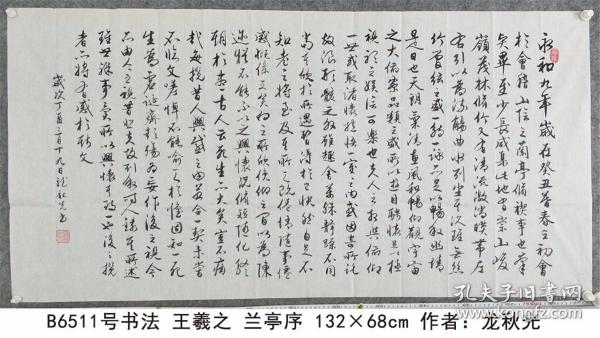 永和九年歲在癸丑暮春之初會
於會稽山陰之蘭亭脩稧事也羣
賢畢至少長咸集此地有崇山峻
嶺茂林脩竹又有清流激湍映帶左
右引以為流觴曲水列坐其次雖無絲
竹管絃之盛一觴一詠亦足以暢敘幽情
是日也天朗氣清惠風和暢仰觀宇宙
之大俯察品類之盛所以遊目騁懷足以極
視聽之娛信可樂也夫人之相與俯仰
一世或取諸懷抱悟言一室之內或因寄所託
放浪形骸之外雖趣舍萬殊靜躁不同
當其欣於所遇暫得於己快然自足不
知老之將至及其所之既倦情隨事遷
感慨係之矣向之所欣俛仰之間以為陳
迹猶不能不以之興懷況脩短隨化終
期於盡古人云死生亦大矣豈不痛
哉每攬昔人興感之由若合一契未嘗
不臨文嗟悼不能喻之於懷固知一死
生為虛誕齊彭殤為妄作後之視今
亦由今之視昔悲夫故列敘時人錄其所述
雖世殊事異所以興懷其致一也後之攬
者亦將有感於斯文
歲次丁酉二月十九日龍秋光書
B6511号书法 王羲之 兰亭序 132×68cm 作者：龙秋光